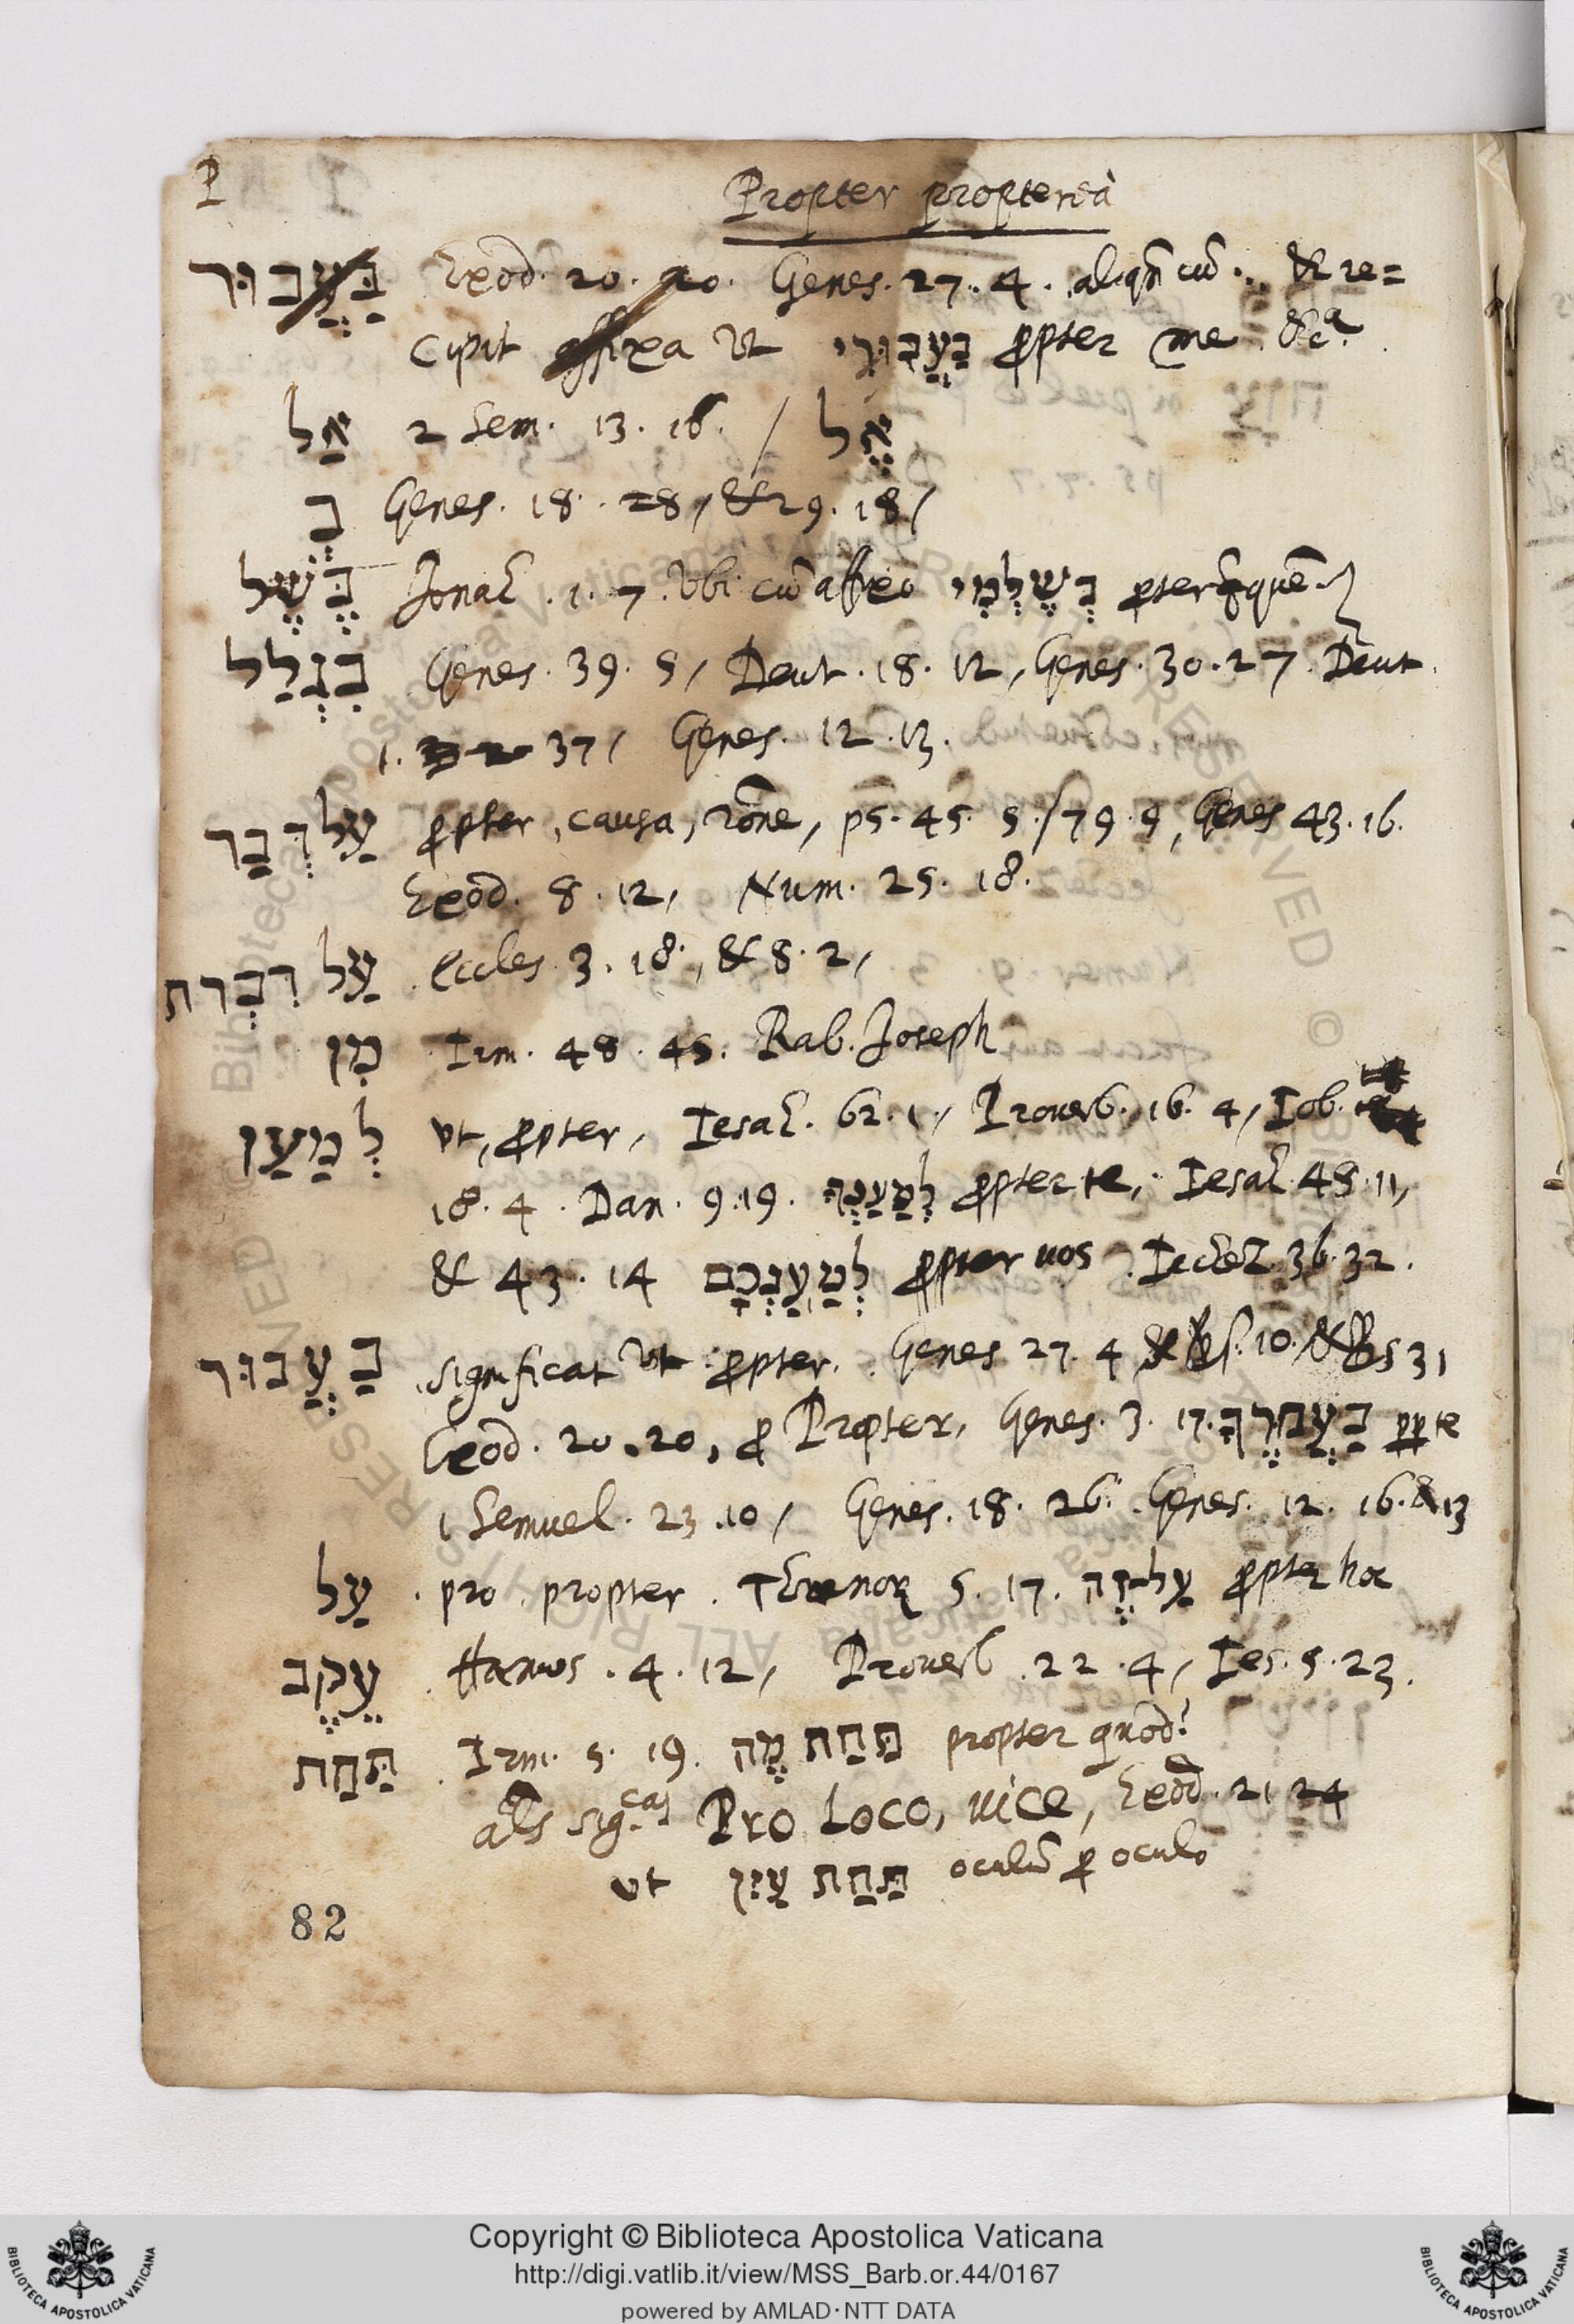 P
Propter propterea
בַּעֲבוּר Exod. 20. 20. Genes. 27. 4. aliqn cū .. & re=
cipit affixa ut בַּעֲבוּרִי ꝓpter me &c.ᵃ
אַל 2 Sem. 13. 16. / אֶל
בְּ Genes. 18. 28, & 29. 18,
בְּשֶׁל Ionah. 1. 7. Vbi cū affixo בְּשֶׁלְמִי
בִּגְלַל Genes. 39. 5, Deut. 18. 12, Genes. 30. 27. Deut.
1. 37, Genes. 12. 13.
עַל דְּבַר ꝓpter, causa, rōne, ps. 45. 5. / 79. 9, Genes 43. 16.
Exod. 8. 12, Num. 25. 18.
עַל דִּבְרת eccles. 3. 18, & 8. 2,
מִן Irm. 48. 45. Rab. Joseph
לְמַעַן vt, ꝓpter, Iesah. 62. 1, Prouerb. 16. 4, Iob.
18. 4. Dan. 9. 19. לְמַעַנְךָ ꝓpter te, Iesah. 48. 11,
& 43. 14 לְמַעַנְכֶם ꝓpter uos. Iechez 36. 32.
בַּעֲבוּר significat Vt ꝓpter. Genes 27. 4 10. & 31
Exod. 20. 20, ꝓ Propter, Genes. 3. 17. בַּעֲבוּרֶךָ ꝓꝓ te
1 Semuel. 23. 10, Genes. 18. 26. Genes. 12. 16. & 13
עַל pro propter. 5. 17. עַל־זֶה ꝓpter hoc
עֵקֶב Hamos. 4. 12, Prouerb 22. 4, Ies. 5. 23.
תַּחַת Irm. 5. 19. תַּחַת מֶה propter quod?
als sig.cat Pro loco, uice, Exod. 21 24
vt תַּחַת עַיִן oculū ꝓ oculo
82
Copyright © Biblioteca Apostolica Vaticana
http://digi.vatlib.it/view/MSS_Barb.or.44/0167
powered by AMLAD · NTT DATA
BIBLIOTECA APOSTOLICA VATICANA
BIBLIOTECA APOSTOLICA VATICANA